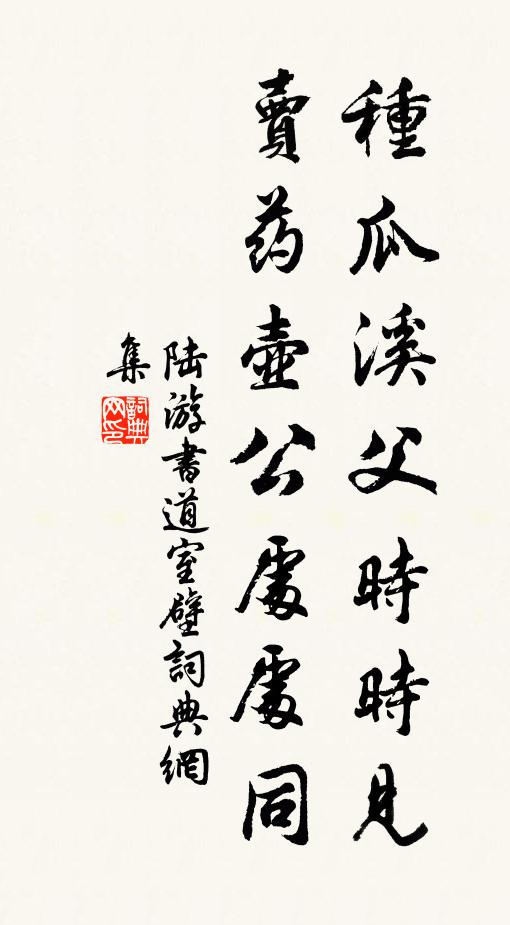 種瓜溪父時時見
賣药壺公處處同
陆游書道室壁詞典網
集
詞典网印